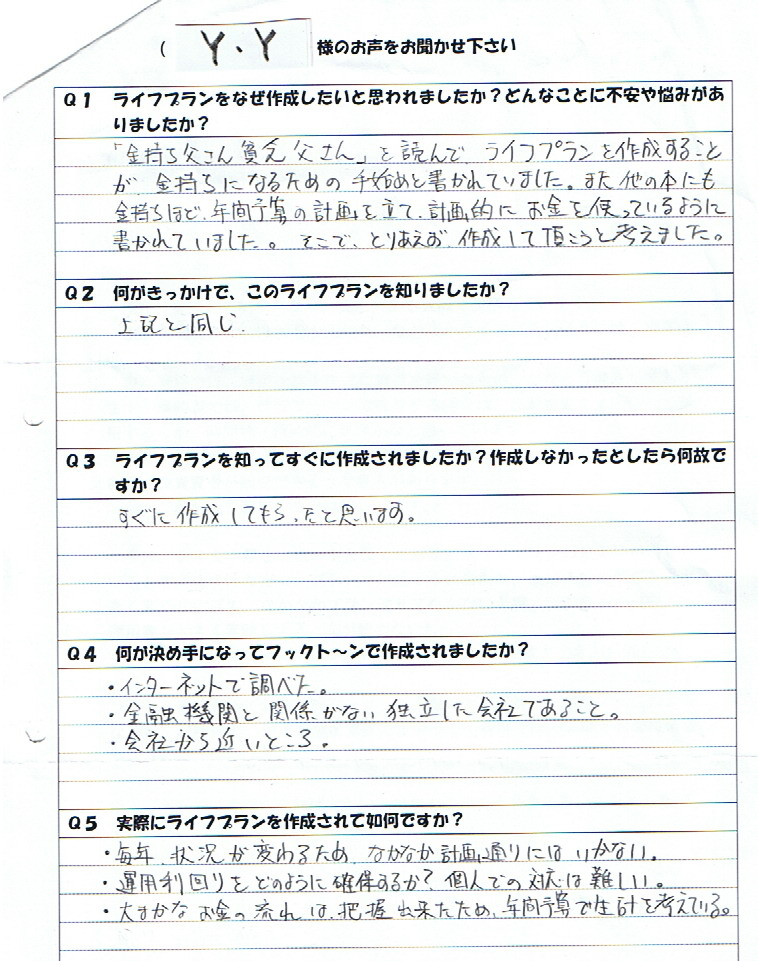 ( Y.Y 様のお声をお聞かせ下さい
Q1 ライフプランをなぜ作成したいと思われましたか？どんなことに不安や悩みがあ
りましたか？
「金持ち父さん貧乏父さん」を読んで、ライフプランを作成すること
が、金持ちになるための手始めと書かれていました。また他の本にも
金持ちほど、年間予算の計画を立て、計画的にお金を使っているように
書かれていました。そこで、とりあえず、作成して頂こうと考えました。
Q2 何がきっかけで、このライフプランを知りましたか？
上記と同じ.
Q3 ライフプランを知ってすぐに作成されましたか？作成しなかったとしたら何故で
すか？
すぐに作成してもらったと思います。
Q4 何が決め手になってフックト～ンで作成されましたか？
・インターネットで調べた。
・金融機関と関係がない独立した会社であること。
・会社から近いところ。
Q5 実際にライフプランを作成されて如何ですか？
・毎年、状況が変わるため、なかなか計画通りにはいかない。
・運用利回りをどのように確保するか？個人での対応は難しい。
・大まかなお金の流れは、把握出来たため、年間予算で生計を考えている。